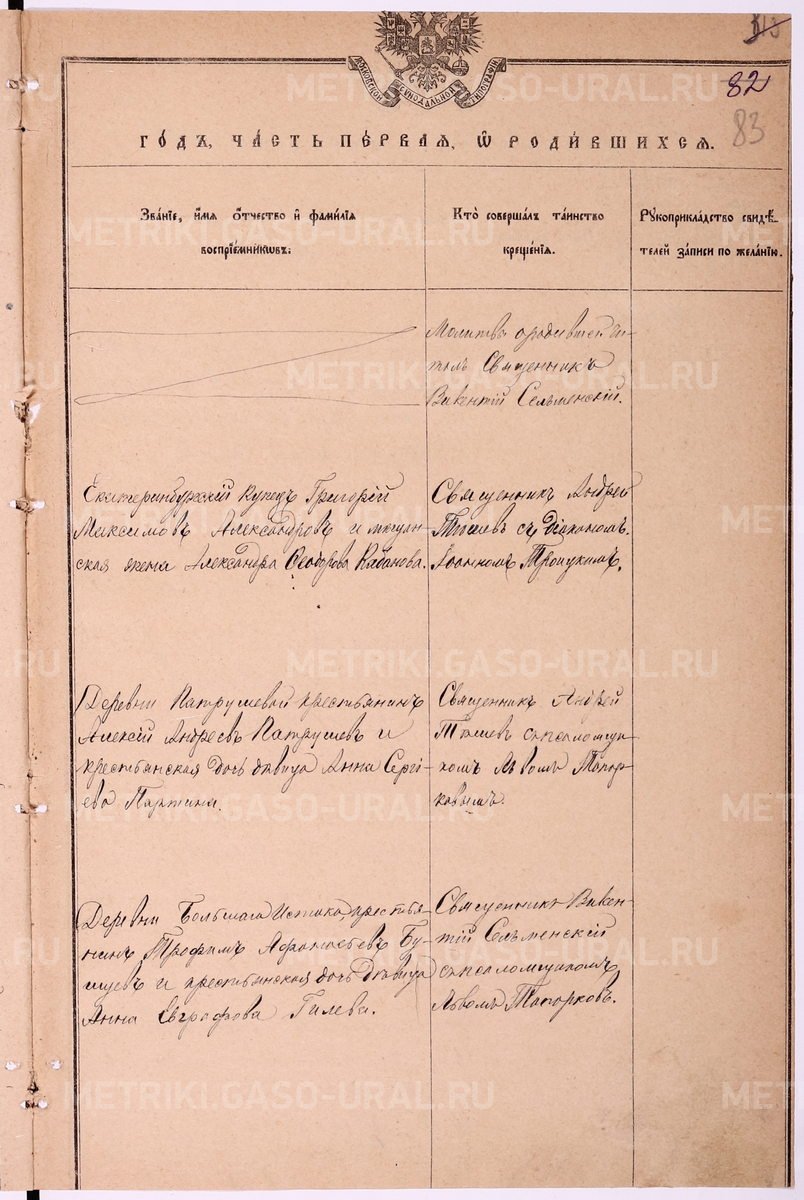 82
83
МОСКОВСКОЙ СѴНОДАЛЬНОЙ ТИПОГРАФІИ
ГО́ДЪ, ЧА́СТЬ ПЕ́РВАЯ, Ѽ РОДИ́ВШИХСЯ.
Зва́нїе, и́мя Ѻ́тчество и҆ фами́лїя
воспрїе́мникѡвъ.
Кто̀ соверша́лъ та́инство
креще́нїя.
Рꙋкоприкла́дство свидѣ́-
телей за́писи по жела́нїю.
Молитв. ородившей чи-
талъ Священникъ
Викентій Сельменскій.
Екатеринбургскій Купецъ Григорій
Максимовъ Александровъ и мещан-
ская жена Александра Ѳеодорова Кабанова.
Священникъ Андрей
Тышевъ съ діакономъ
Іоанномъ Троицкимъ.
Деревни Патрушевой крестьянинъ
Алексій Андреевъ Патрушевъ и
крестьянская дочь дѣвица Анна Сергі-
ева Партина.
Священникъ Андрей
Тышевъ с псаломщи-
комъ Львомъ Топор-
ковымъ.
Деревни Большаго Истока, крестья-
нинъ Трофимъ Афанасьевъ Бу-
шуевъ и крестьянская дочь дѣвица
Анна Евграфова Гилева.
Священникъ Викен-
тій Сельменскій
с псаломщикомъ
Львомъ Топорковъ.
METRIKI.GASO-URAL.RU